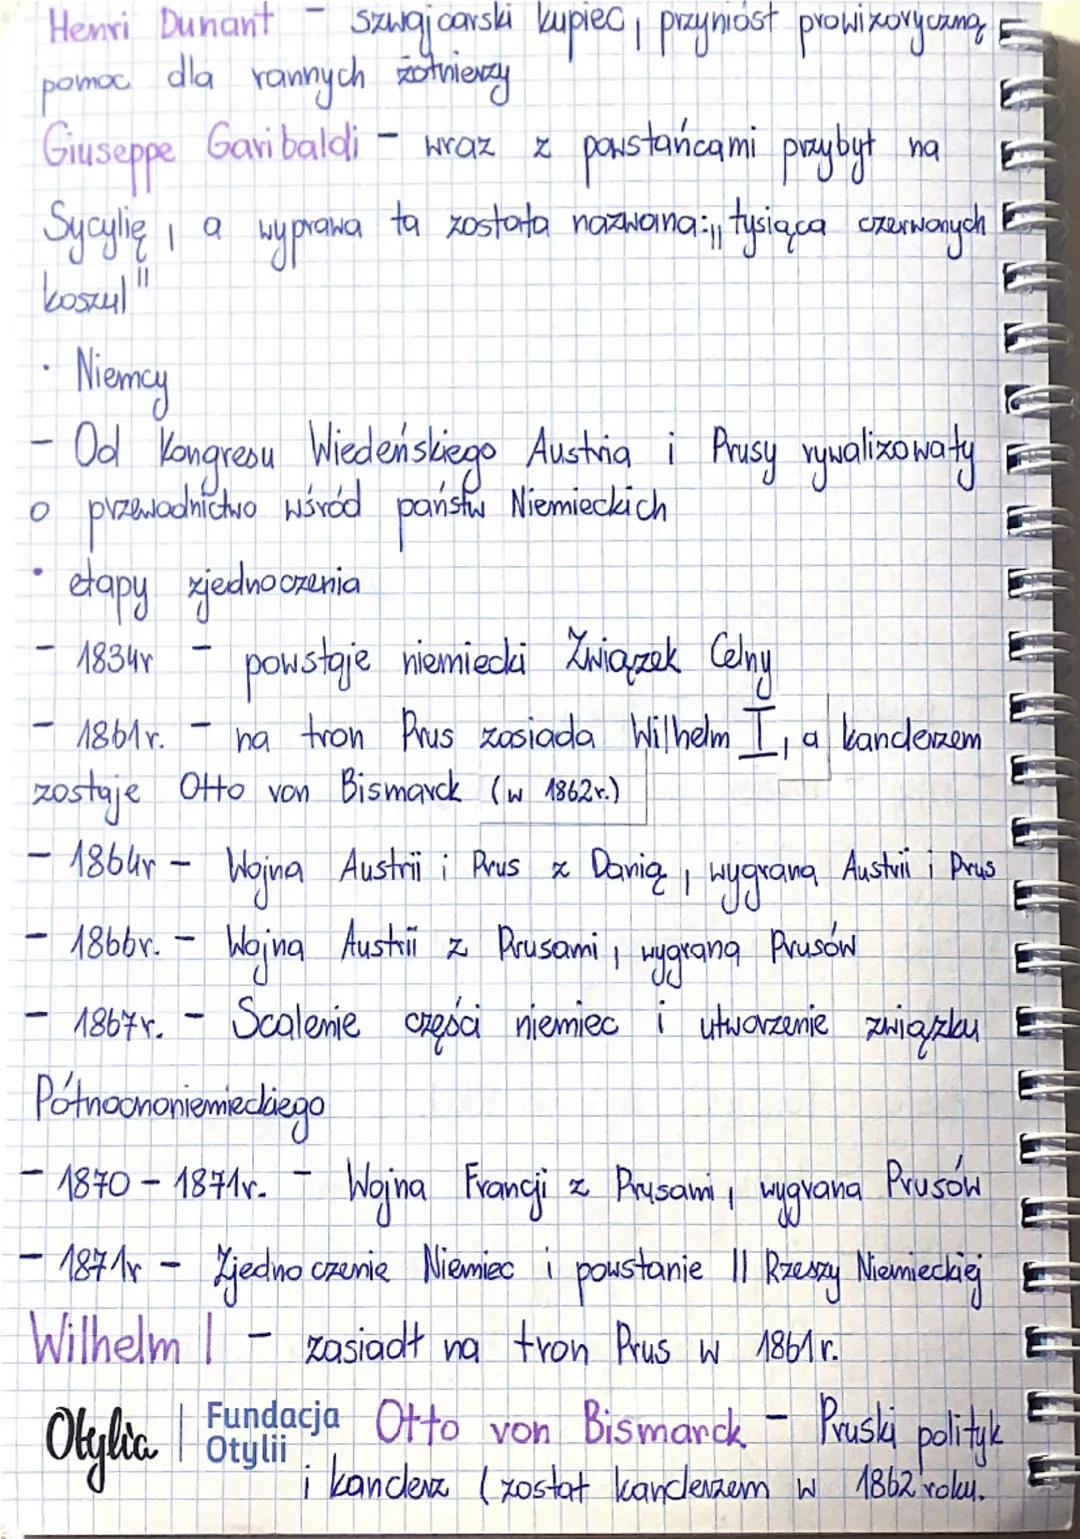 Henri Dunant - szwajcarski kupiec, przyniósł prowizoryczną
pomoc dla rannych żołnierzy
Giuseppe Garibaldi - wraz z powstańcami przybył na
Sycylię, a wyprawa ta została nazwana: „tysiąca czerwonych
koszul"
· Niemcy
- Od Kongresu Wiedeńskiego Austria i Prusy rywalizowały
o przewodnictwo wśród państw Niemieckich
· etapy zjednoczenia
- 1834r - powstaje niemiecki Związek Celny
- 1861r. - na tron Prus zasiada Wilhelm I, a kanclerzem
zostaje Otto von Bismarck (w 1862r.)
- 1864r - Wojna Austrii i Prus z Danią, wygrana Austrii i Prus
- 1866r. - Wojna Austrii z Prusami, wygrana Prusów
- 1867r. - Scalenie części niemiec i utworzenie związku
Północnoniemieckiego
- 1870 - 1871r. - Wojna Francji z Prusami, wygrana Prusów
- 1871r - Zjednoczenie Niemiec i powstanie II Rzeszy Niemieckiej
Wilhelm I - zasiadł na tron Prus w 1861r.
Otylia | Fundacja Otylii
Otto von Bismarck - Pruski polityk
i kanclerz (został kanclerzem w 1862 roku.